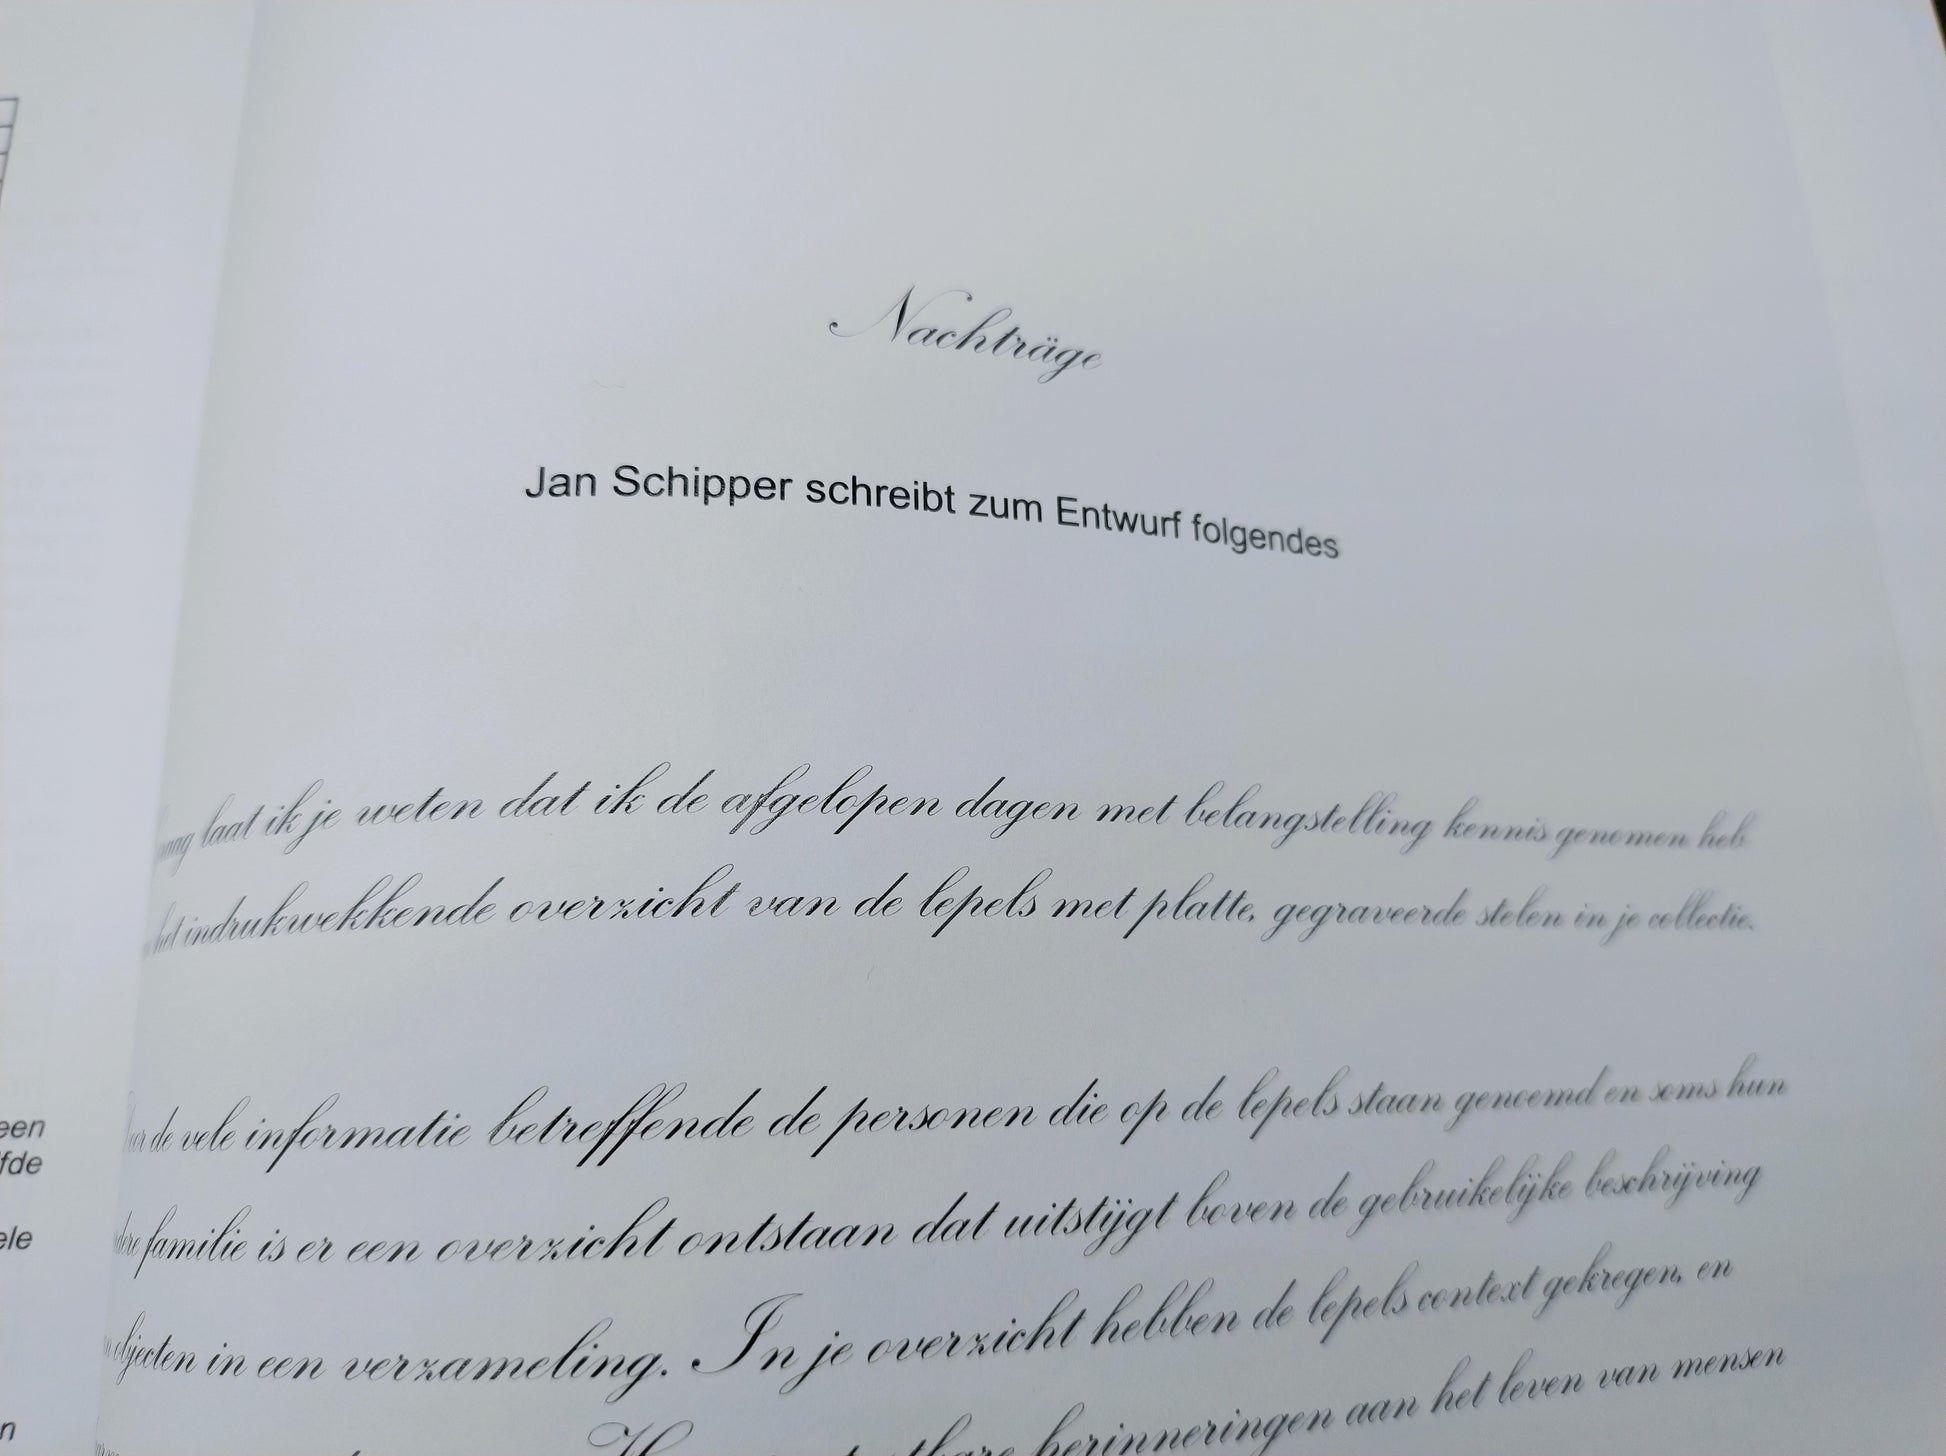 Nachträge
Jan Schipper schreibt zum Entwurf folgendes
laat ik je weten dat ik de afgelopen dagen met belangstelling kennis genomen heb
het indrukwekkende overzicht van de lepels met platte, gegraveerde stelen in je collectie.
de vele informatie betreffende de personen die op de lepels staan genoemd en soms hun
familie is er een overzicht ontstaan dat uitstijgt boven de gebruikelijke beschrijving
objecten in een verzameling. In je overzicht hebben de lepels context gekregen, en
herinneringen aan het leven van mensen
een
fde
ele
n